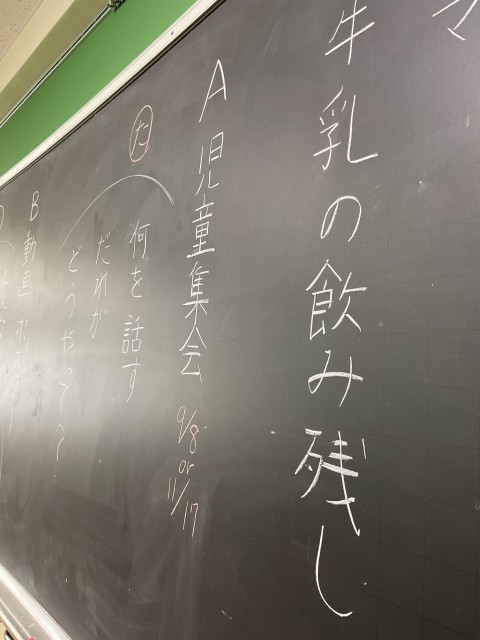 牛乳の飲み残し
A 児童集会 9/8 or 11/17
た
何を話す
だれが
どうやって?
B 動画